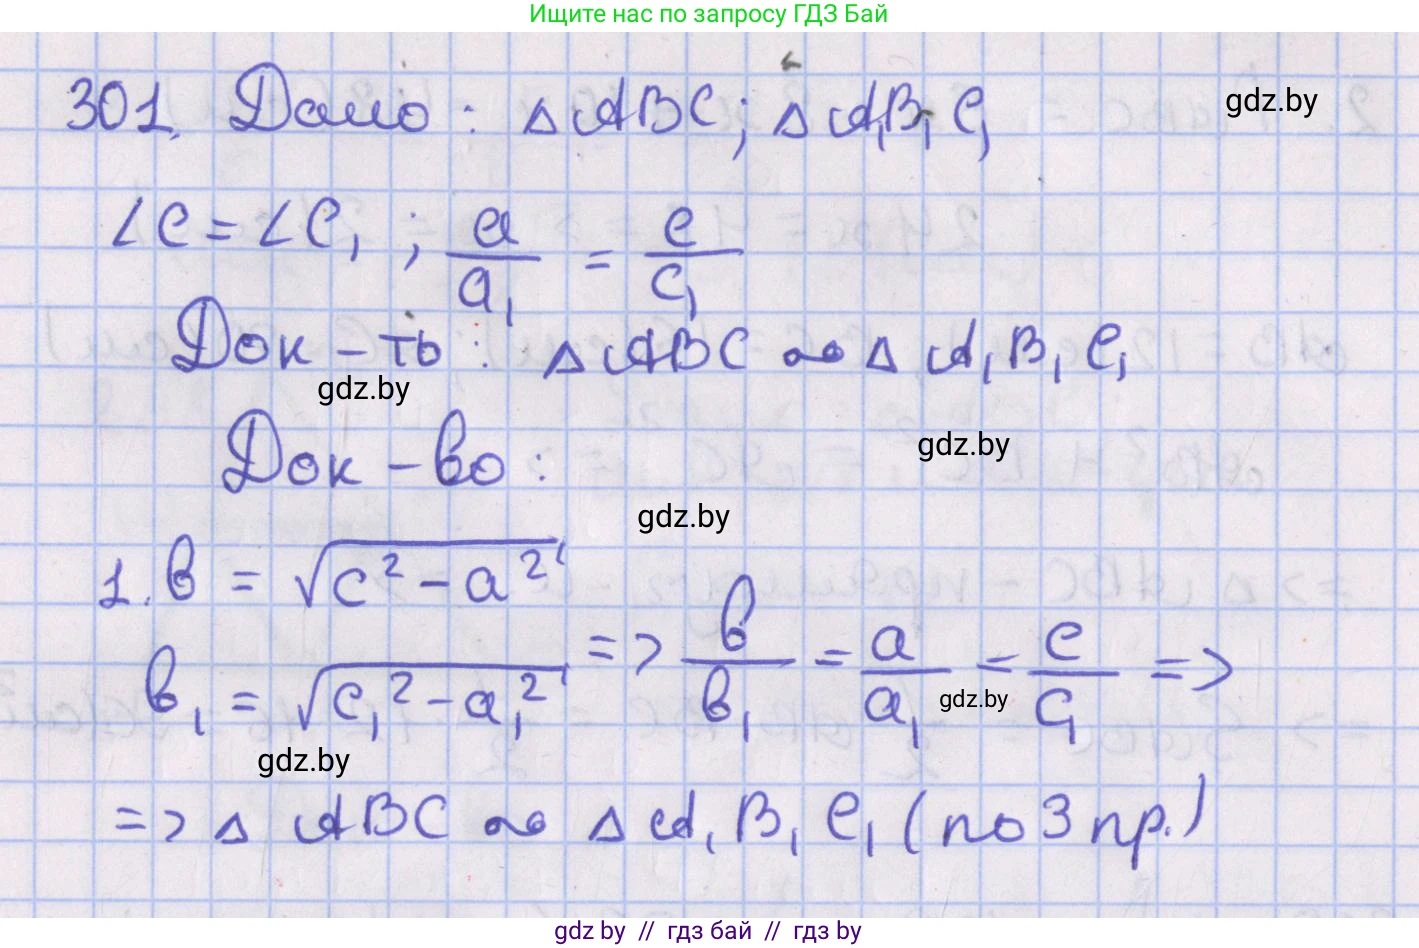 Ищите нас по запросу ГДЗ Бай
301. Дано: △ABC; △A₁B₁C₁
gdz.by
∠C = ∠C₁; a/a₁ = c/c₁
Док-ть: △ABC ∾ △A₁B₁C₁
gdz.by
Док-во:
gdz.by
gdz.by
1. в = √(c² - a²)
в₁ = √(c₁² - a₁²) => в/в₁ = a/a₁ = c/c₁ =>
gdz.by
gdz.by
=> △ABC ∾ △A₁B₁C₁ (по 3 пр.)
gdz.by // гдз бай // гдз by